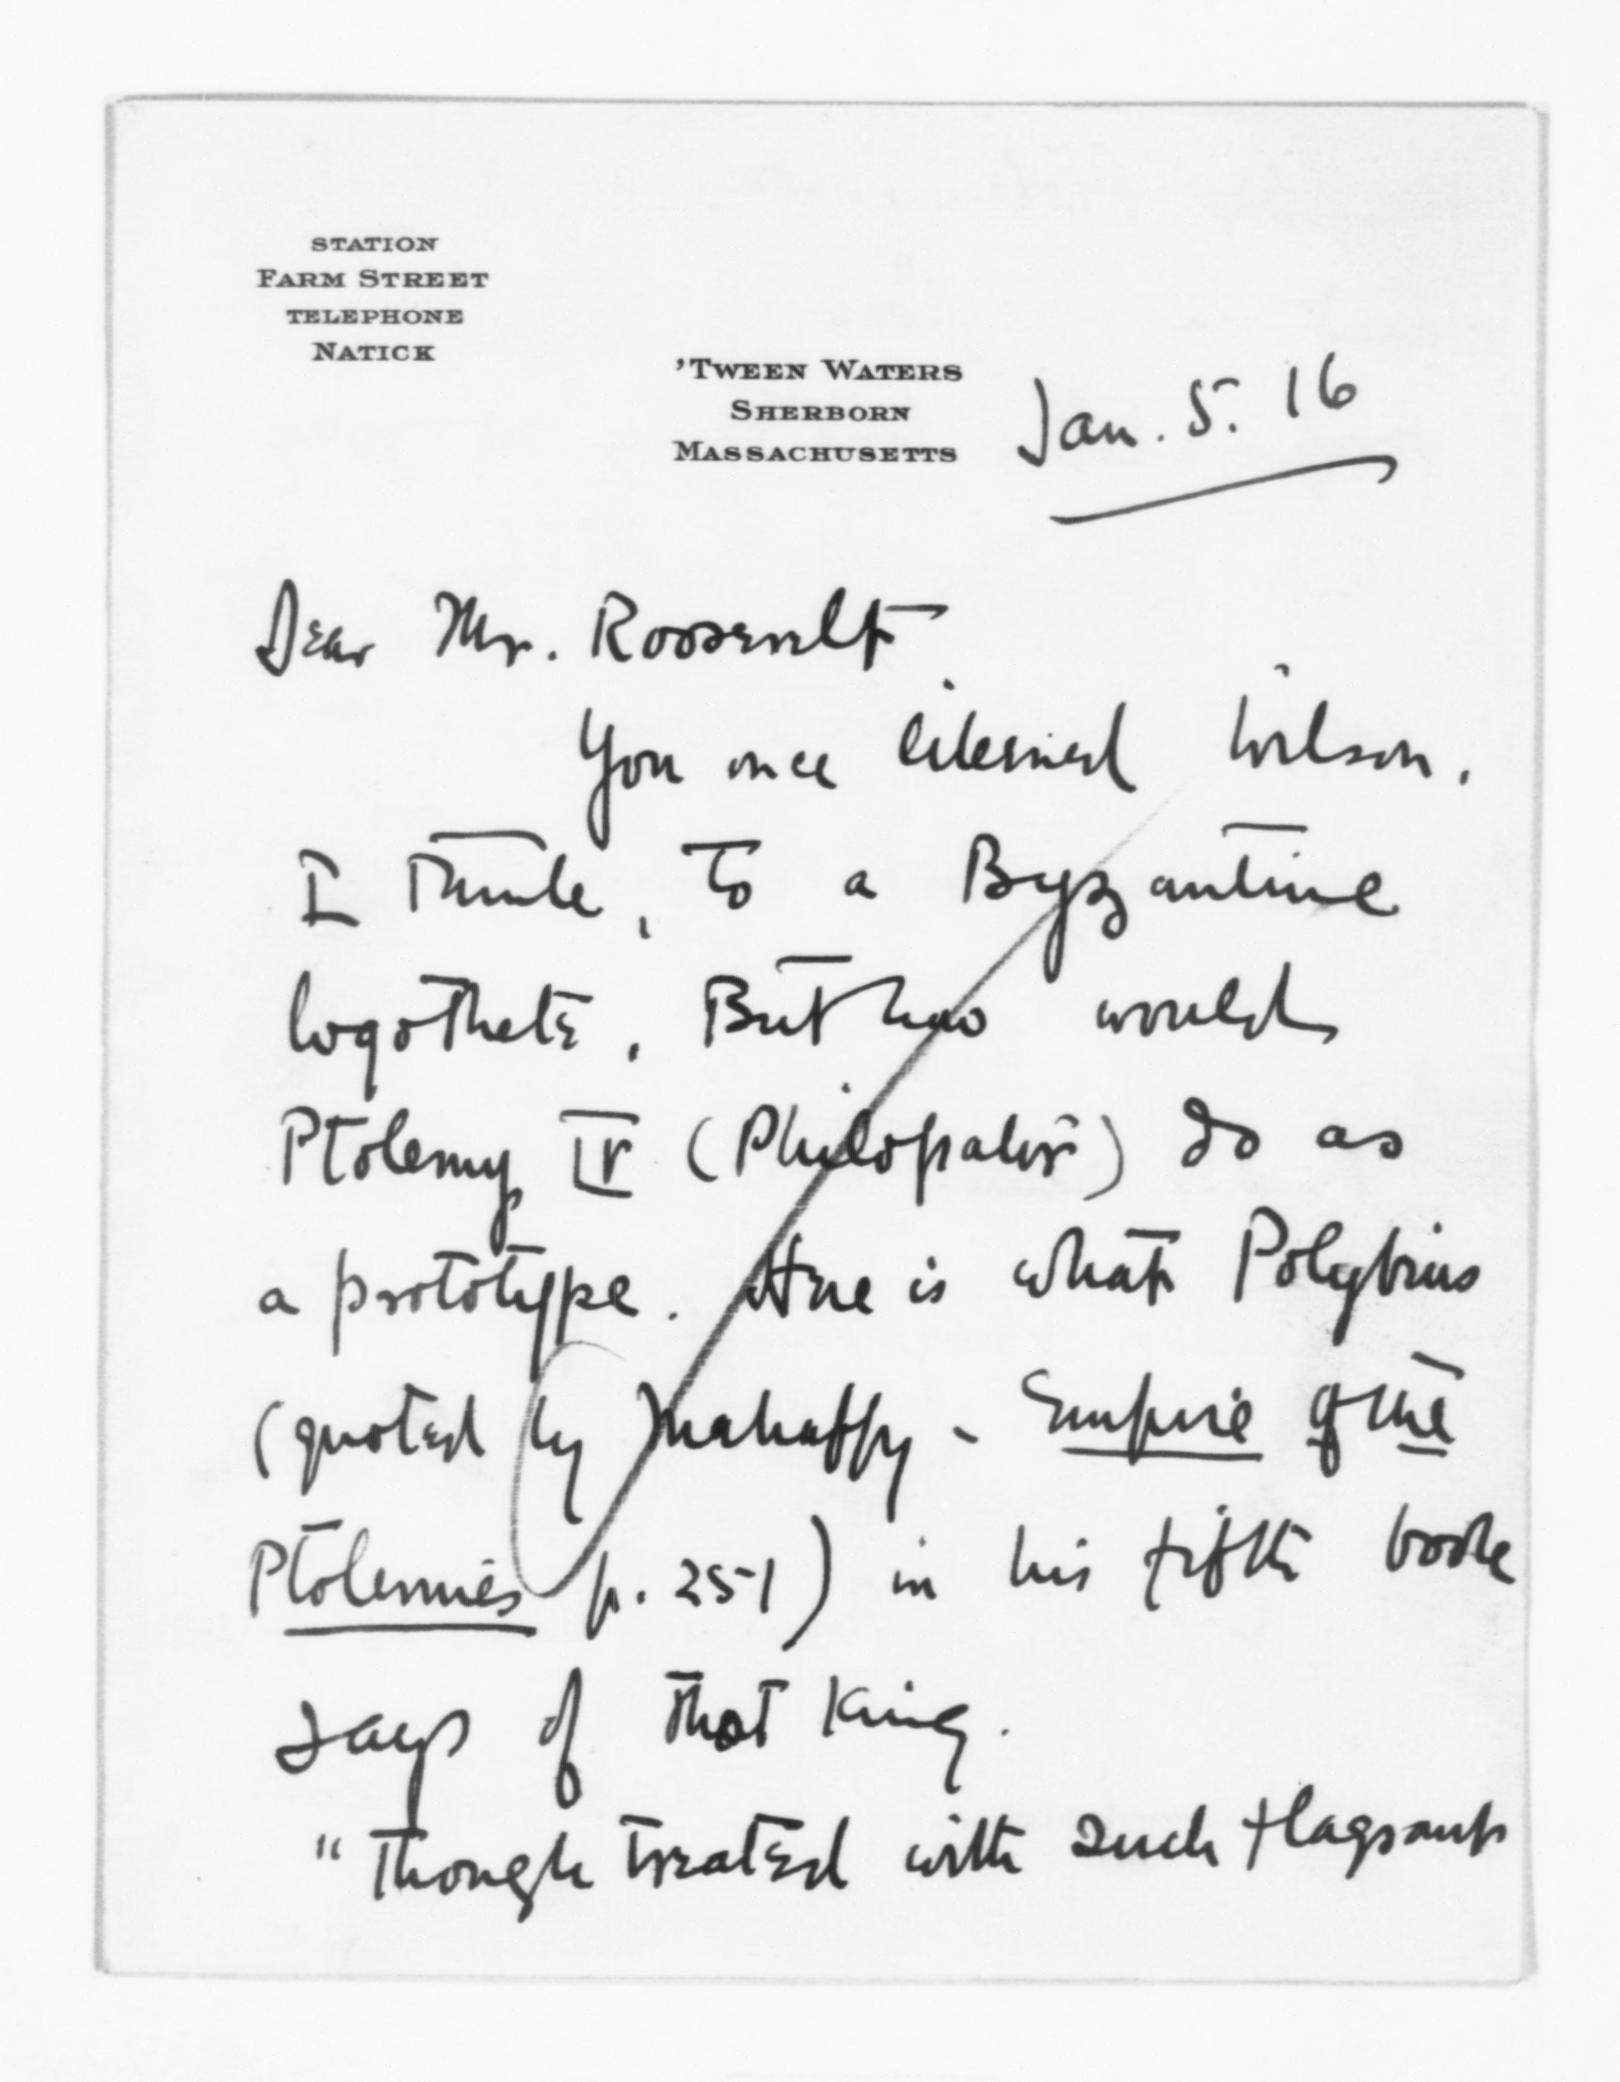 STATION
FARM STREET
TELEPHONE
NATICK
'TWEEN WATERS
SHERBORN
MASSACHUSETTS
Jan. 5. 16
Dear Mr. Roosevelt
You once likened Wilson,
I think, to a Byzantine
logothete. But how would
Ptolemy IV (Philopator) do as
a prototype. Here is what Polybius
(quoted by Mahaffy - Empire of the
Ptolemies p. 251) in his fifth book
says of that King.
"Though treated with such flagrant